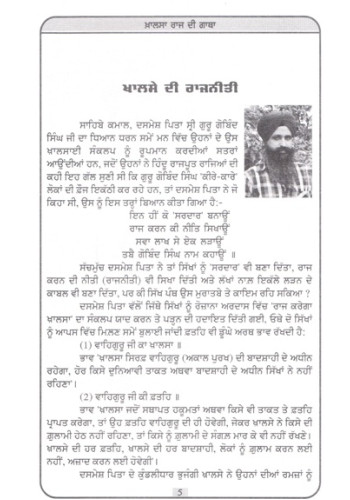 ਖ਼ਾਲਸਾ ਰਾਜ ਦੀ ਗਾਥਾ
ਖਾਲਸੇ ਦੀ ਰਾਜਨੀਤੀ
ਸਾਹਿਬੇ ਕਮਾਲ, ਦਸਮੇਸ਼ ਪਿਤਾ ਸ੍ਰੀ ਗੁਰੂ ਗੋਬਿੰਦ
ਸਿੰਘ ਜੀ ਦਾ ਧਿਆਨ ਧਰਨ ਸਮੇਂ ਮਨ ਵਿੱਚ ਉਹਨਾਂ ਦੇ ਉਸ
ਖਾਲਸਾਈ ਸੰਕਲਪ ਨੂੰ ਰੂਪਮਾਨ ਕਰਦੀਆਂ ਸਤਰਾਂ
ਆਉਂਦੀਆਂ ਹਨ, ਜਦੋਂ ਉਹਨਾਂ ਨੇ ਹਿੰਦੂ ਰਾਜਪੂਤ ਰਾਜਿਆਂ ਦੀ
ਕਹੀ ਇਹ ਗੱਲ ਸੁਣੀ ਸੀ ਕਿ ਗੁਰੂ ਗੋਬਿੰਦ ਸਿੰਘ 'ਕੀਰੇ-ਕਾਰੇ'
ਲੋਕਾਂ ਦੀ ਫ਼ੌਜ ਇਕੱਠੀ ਕਰ ਰਹੇ ਹਨ, ਤਾਂ ਦਸਮੇਸ਼ ਪਿਤਾ ਨੇ ਜੋ
ਕਿਹਾ ਸੀ, ਉਸ ਨੂੰ ਇਸ ਤਰ੍ਹਾਂ ਬਿਆਨ ਕੀਤਾ ਗਿਆ ਹੈ:-
ਇਨ ਹੀਂ ਕੋ 'ਸਰਦਾਰ' ਬਨਾਊਂ
ਰਾਜ ਕਰਨ ਕੀ ਨੀਤਿ ਸਿਖਾਊਂ
ਸਵਾ ਲਾਖ ਸੇ ਏਕ ਲੜਾਊਂ
ਤਬੈ ਗੋਬਿੰਦ ਸਿੰਘ ਨਾਮ ਕਹਾਊਂ ॥
ਸੱਚਮੁੱਚ ਦਸਮੇਸ਼ ਪਿਤਾ ਨੇ ਤਾਂ ਸਿੱਖਾਂ ਨੂੰ 'ਸਰਦਾਰ' ਵੀ ਬਣਾ ਦਿੱਤਾ, ਰਾਜ
ਕਰਨ ਦੀ ਨੀਤੀ (ਰਾਜਨੀਤੀ) ਵੀ ਸਿਖਾ ਦਿੱਤੀ ਅਤੇ ਲੱਖਾਂ ਨਾਲ਼ ਇਕੱਲੇ ਲੜਨ ਦੇ
ਕਾਬਲ ਵੀ ਬਣਾ ਦਿੱਤਾ, ਪਰ ਕੀ ਸਿੱਖ ਪੰਥ ਉਸ ਮੁਰਾਤਬੇ ਤੇ ਕਾਇਮ ਰਹਿ ਸਕਿਆ ?
ਦਸਮੇਸ਼ ਪਿਤਾ ਵੱਲੋਂ ਜਿੱਥੇ ਸਿੱਖਾਂ ਨੂੰ ਰੋਜ਼ਾਨਾ ਅਰਦਾਸ ਵਿੱਚ 'ਰਾਜ ਕਰੇਗਾ
ਖਾਲਸਾ' ਦਾ ਸੰਕਲਪ ਯਾਦ ਕਰਨ ਤੇ ਪੜ੍ਹਨ ਦੀ ਹਦਾਇਤ ਦਿੱਤੀ ਗਈ, ਓਥੇ ਦੋ ਸਿੱਖਾਂ
ਨੂੰ ਆਪਸ ਵਿੱਚ ਮਿਲਣ ਸਮੇਂ ਬੁਲਾਈ ਜਾਂਦੀ ਫ਼ਤਹਿ ਵੀ ਡੂੰਘੇ ਅਰਥ ਭਾਵ ਰੱਖਦੀ ਹੈ:
(1) ਵਾਹਿਗੁਰੂ ਜੀ ਕਾ ਖਾਲਸਾ ॥
ਭਾਵ 'ਖਾਲਸਾ ਸਿਰਫ਼ ਵਾਹਿਗੁਰੂ (ਅਕਾਲ ਪੁਰਖ) ਦੀ ਬਾਦਸ਼ਾਹੀ ਦੇ ਅਧੀਨ
ਰਹੇਗਾ, ਹੋਰ ਕਿਸੇ ਦੁਨਿਆਵੀ ਤਾਕਤ ਅਥਵਾ ਬਾਦਸ਼ਾਹੀ ਦੇ ਅਧੀਨ ਸਿੱਖਾਂ ਨੇ ਨਹੀਂ
ਰਹਿਣਾ'।
(2) ਵਾਹਿਗੁਰੂ ਜੀ ਕੀ ਫ਼ਤਹਿ ॥
ਭਾਵ 'ਖਾਲਸਾ ਜਦੋਂ ਸਥਾਪਤ ਹਕੂਮਤਾਂ ਅਥਵਾ ਕਿਸੇ ਵੀ ਤਾਕਤ ਤੇ ਫ਼ਤਹਿ
ਪ੍ਰਾਪਤ ਕਰੇਗਾ, ਤਾਂ ਉਹ ਫ਼ਤਹਿ ਵਾਹਿਗੁਰੂ ਦੀ ਹੀ ਹੋਵੇਗੀ, ਜੇਕਰ ਖਾਲਸੇ ਨੇ ਕਿਸੇ ਦੀ
ਗ਼ੁਲਾਮੀ ਹੇਠ ਨਹੀਂ ਰਹਿਣਾ, ਤਾਂ ਕਿਸੇ ਨੂੰ ਗ਼ੁਲਾਮੀ ਦੇ ਸੰਗਲ ਮਾਰ ਕੇ ਵੀ ਨਹੀਂ ਰੱਖਣੇ।
ਖਾਲਸੇ ਦੀ ਹਰ ਫ਼ਤਹਿ, ਖਾਲਸੇ ਦੀ ਹਰ ਬਾਦਸ਼ਾਹੀ, ਲੋਕਾਂ ਨੂੰ ਗ਼ੁਲਾਮ ਕਰਨ ਲਈ
ਨਹੀਂ, ਅਜ਼ਾਦ ਕਰਨ ਲਈ ਹੋਵੇਗੀ'।
ਦਸਮੇਸ਼ ਪਿਤਾ ਦੇ ਕੁੰਡਲੀਧਾਰ ਭੁਜੰਗੀ ਖਾਲਸੇ ਨੇ ਉਹਨਾਂ ਦੀਆਂ ਰਮਜ਼ਾਂ ਨੂੰ
5